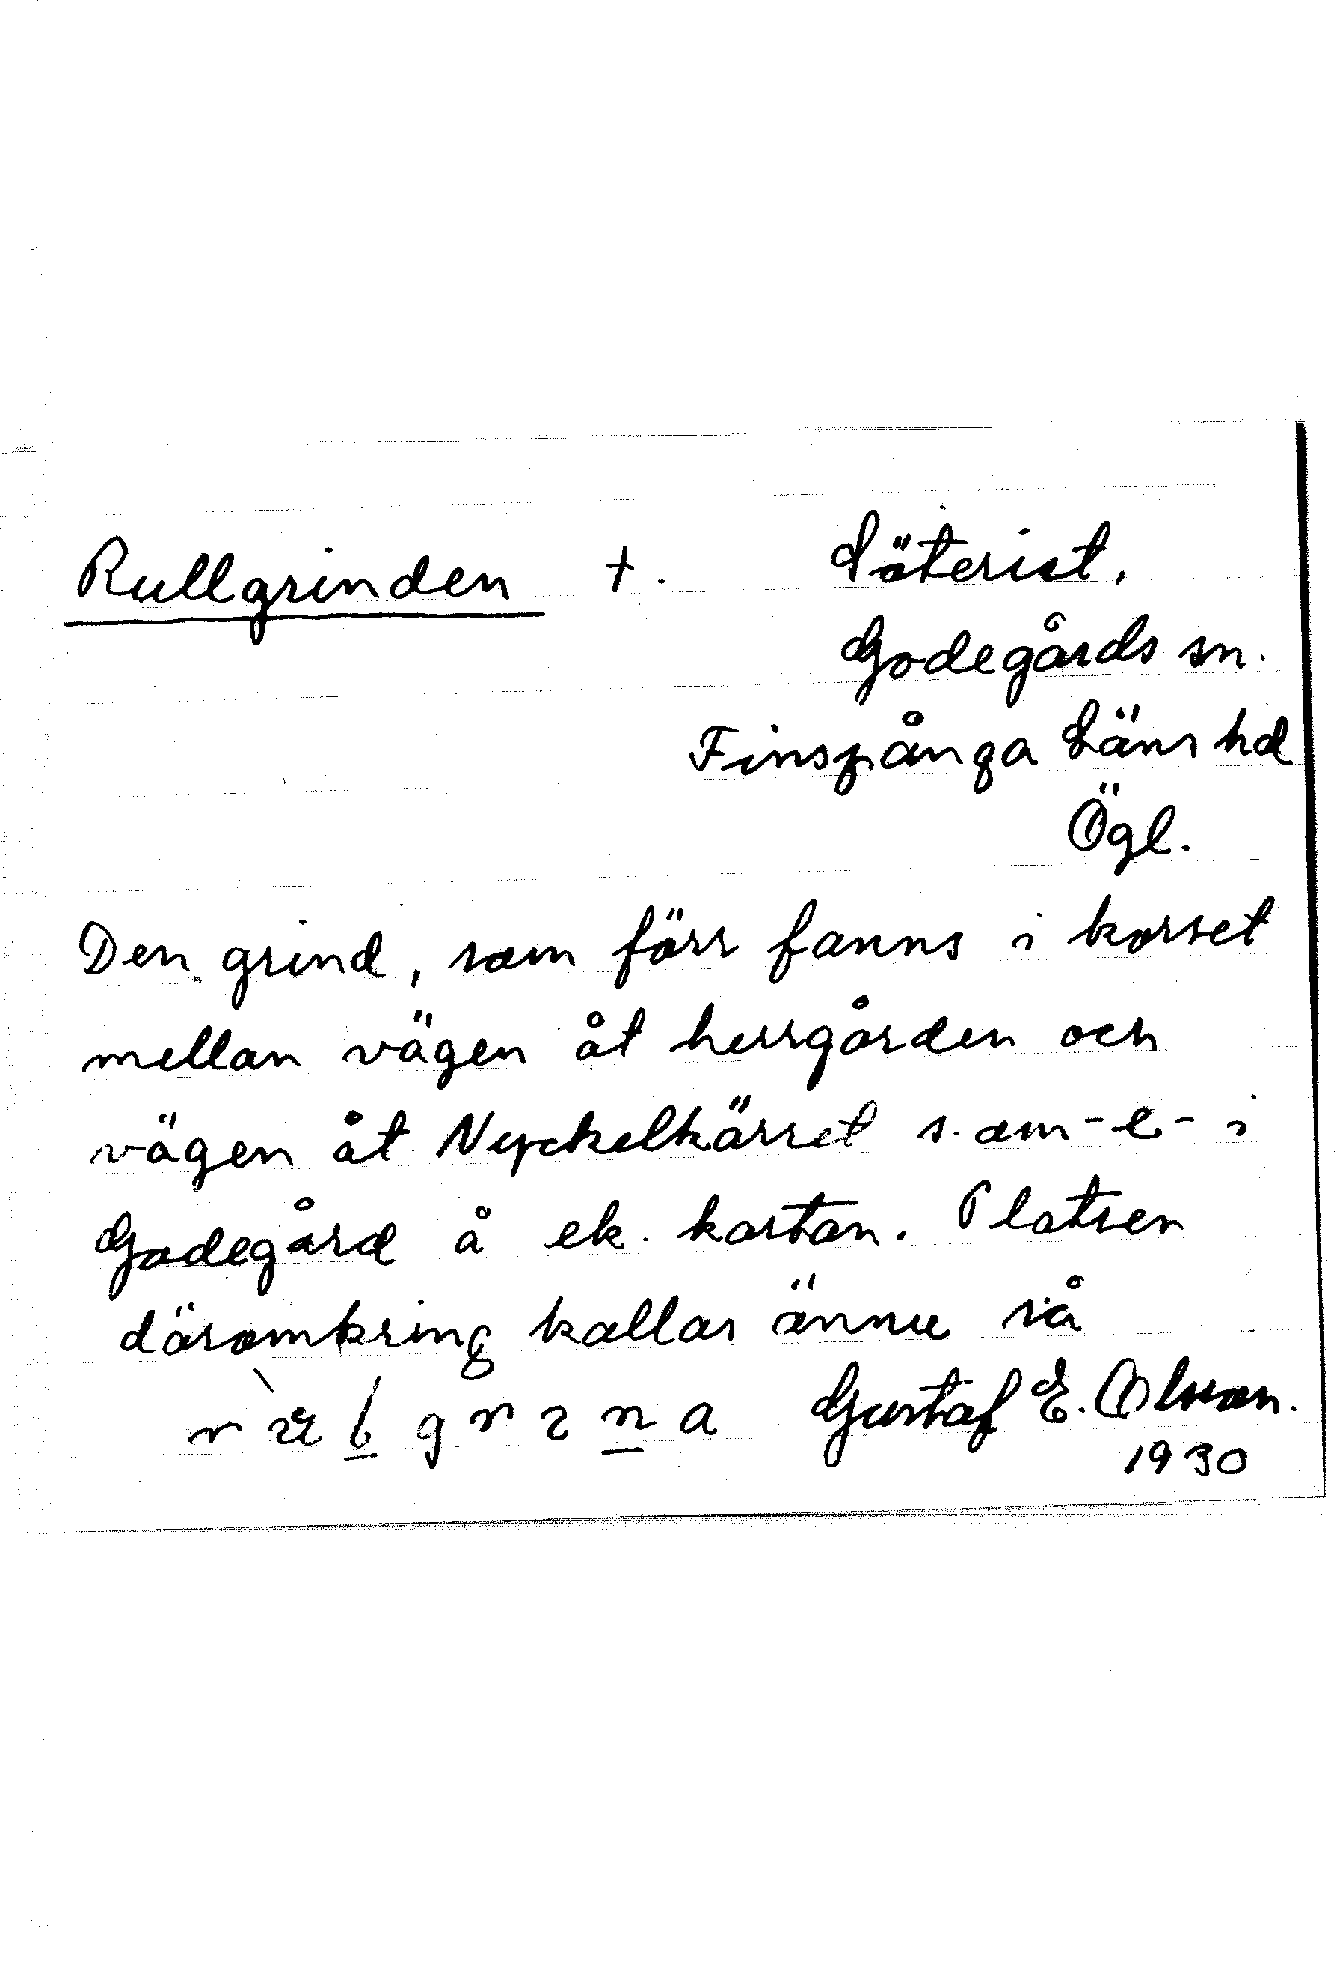 Rullgrinden †. Säterist.
Godegårds sn.
Finspånga Läns hd
Ögl.
Den grind, som förr fanns i korset
mellan vägen åt herrgården och
vägen åt Nyckelkärret s. om -e- i
Godegård å ek. kartan. Platsen
däromkring kallas ännu så
Gustaf E. Olsson.
1930